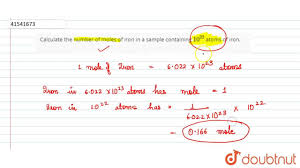 41541673
Calculate the number of moles of iron in a sample containing 10²² atoms of iron.
1 mole of Iron = 6.022 × 10²³ atoms
Iron in 6.022×10²³ atoms has mole = 1
Iron in 10²² atoms has = 1 / 6.022×10²³ × 10²²
= 0.166 mole
doubtnut